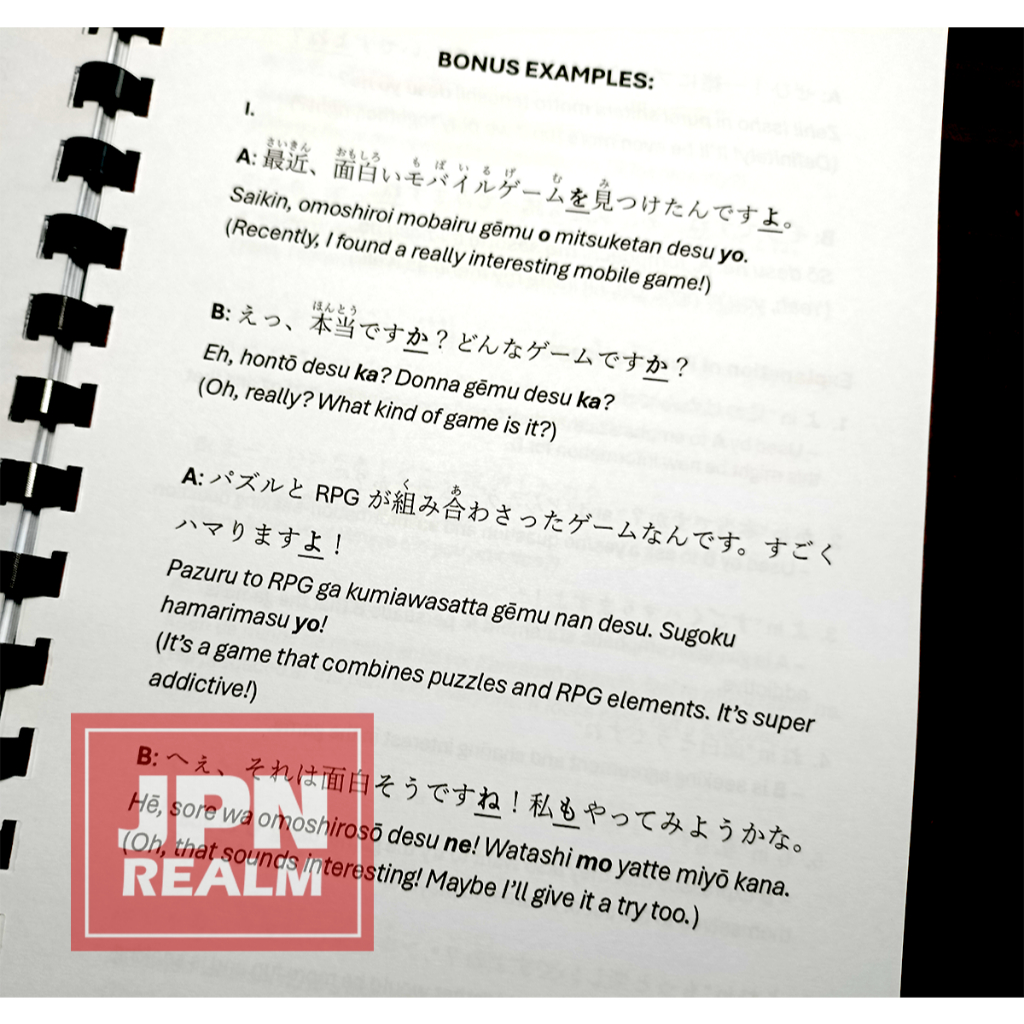 BONUS EXAMPLES:
I.
さいきん おもしろ もばいるげ む み
A: 最近、面白いモバイルゲームを見つけたんですよ。
Saikin, omoshiroi mobairu gēmu o mitsuketan desu yo.
(Recently, I found a really interesting mobile game!)
ほんとう
B: えっ、本当ですか？どんなゲームですか？
Eh, hontō desu ka? Donna gēmu desu ka?
(Oh, really? What kind of game is it?)
く あ
A: パズルと RPG が組み合わさったゲームなんです。すごく
ハマりますよ！
Pazuru to RPG ga kumiawasatta gēmu nan desu. Sugoku
hamarimasu yo!
(It's a game that combines puzzles and RPG elements. It's super
addictive!)
B: へぇ、それは面白そうですね！私もやってみようかな。
Hē, sore wa omoshirosō desu ne! Watashi mo yatte miyō kana.
(Oh, that sounds interesting! Maybe I'll give it a try too.)
JPN
REALM